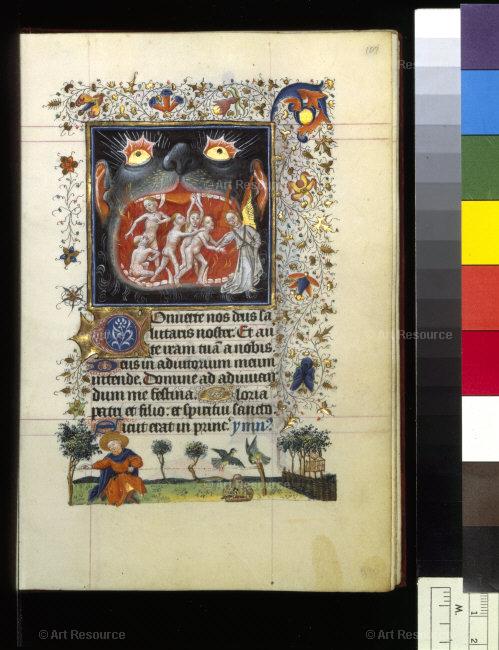 107
Conuerte nos deus sa
lutaris noster. Et auer
te iram tuā a nobis.
Deus in adiutorium meum
intende. Domine ad adiuuan
dum me festina. Gloria
patri et filio: et spiritui sancto.
Sicut erat in princ.
M. 1 2
© Art Resource
© Art Resource
© Art Resource
© Art Resource
© Art Resource
© Art Resource
© Art Resource
© Art Resource